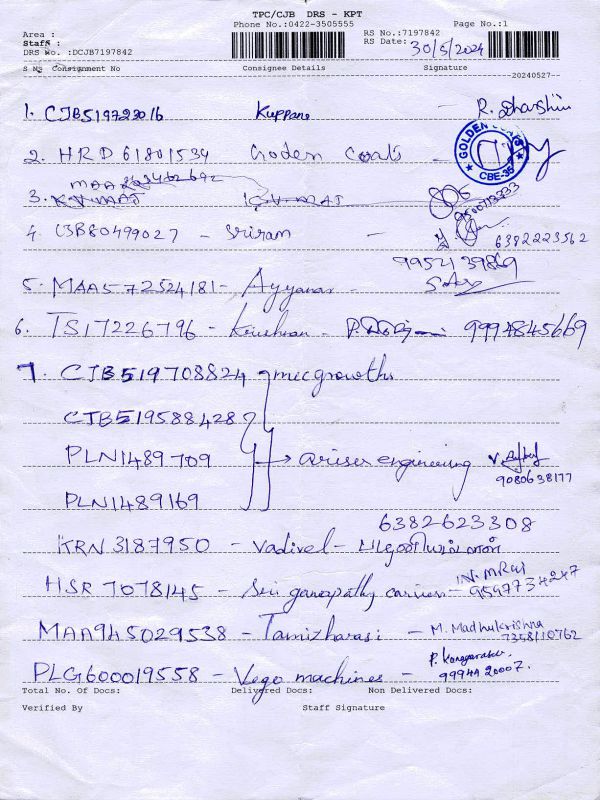 TPC/CJB DRS - KPT
Phone No.:0422-3505555 Page No.:1
Area : RS No.:7197842
Staff : RS Date: 30/5/2024
DRS No. :DCJB7197842
S No Consignment No Consignee Details Signature
--20240527--
1. CJB519722016 Kuppans - R. Dharshini
2. HRD 61801534 Goden Coats -
GOLDEN COATS
CBE-35
MAA
3. KVMAT KVMAT 9500713333
4. CJB80499027 - Sriram - 6382223562
9952139869
5. MAA572524181 - Ayyanar -
6. TS17226796 - - 9994845669
7. CJB519708824 - mecgrowths
CJB519588428
PLN1489709 → ariser engineering
9080638177
PLN1489169
6382623308
KRN3187950 - Vadivel -
HSR 7078145 - Sri ganapathy carrier - 9597734247
MAA945029538 - Tamizharasi - M. Madhukrishna
7358110762
PLG600019558 - Vego machines -
9994920007.
Total No. Of Docs: Delivered Docs: Non Delivered Docs:
Verified By Staff Signature